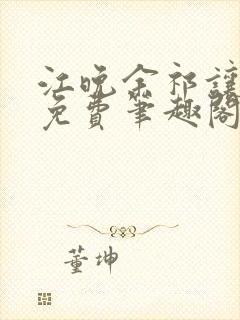 江晚余祁让
免费笔趣阁
董坤